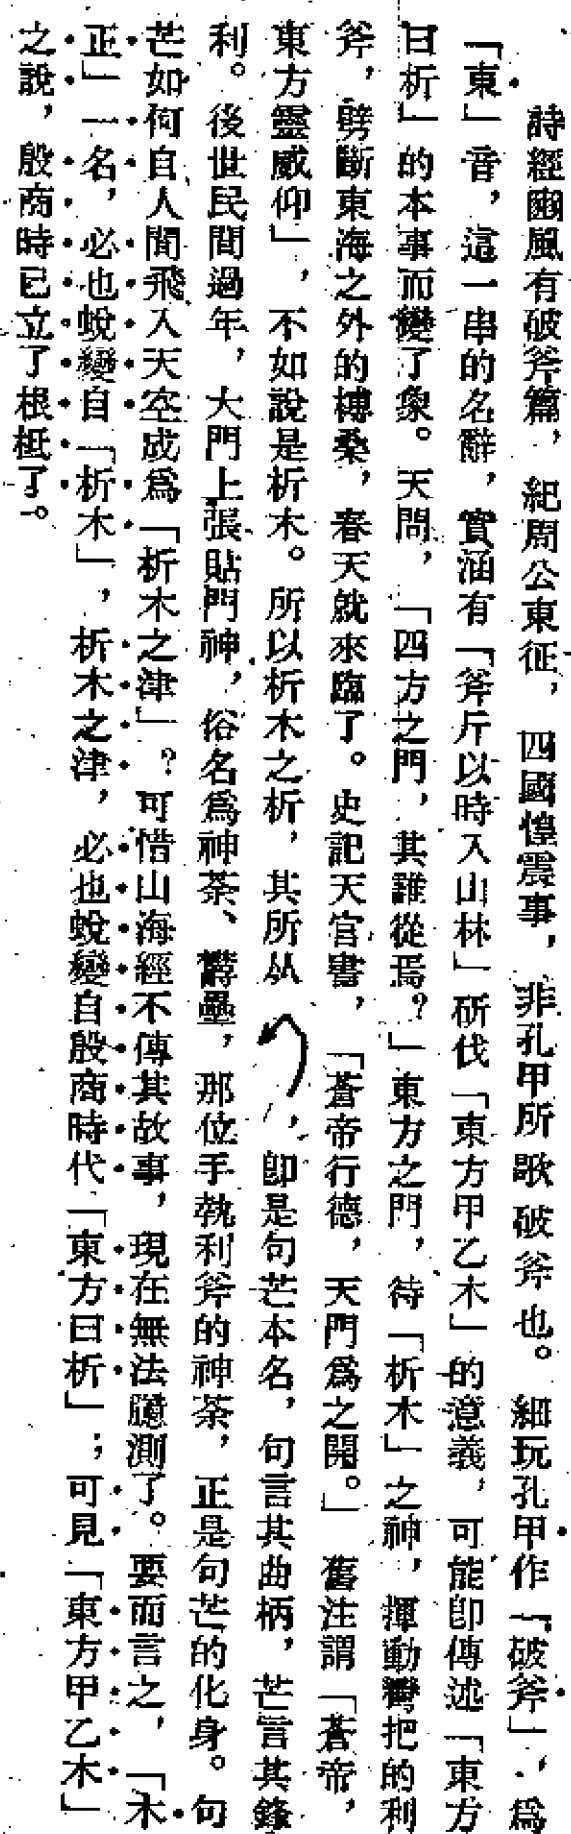 詩經豳風有破斧篇，紀周公東征，四國惶震事，非孔甲所歌破斧也。細玩孔甲作「破斧」，爲
「東」音，這一串的名辭，實涵有「斧斤以時入山林」斫伐「東方甲乙木」的意義，可能卽傳述「東方
曰析」的本事而變了象。天問，「四方之門，其誰從焉？」東方之門，待「析木」之神，揮動彎把的利
斧，劈斷東海之外的榑桑，春天就來臨了。史記天官書，「蒼帝行德，天門爲之開。」舊注謂「蒼帝，
東方靈威仰」，不如說是析木。所以析木之析，其所从，卽是句芒本名，句言其曲柄，芒言其鋒
利。後世民間過年，大門上張貼門神，俗名爲神荼、鬱壘，那位手執利斧的神荼，正是句芒的化身。句
芒如何自人間飛入天空成爲「析木之津」？可惜山海經不傳其故事，現在無法臆測了。要而言之，「木
正」一名，必也蛻變自「析木」，析木之津，必也蛻變自殷商時代「東方曰析」；可見「東方甲乙木」
之說，殷商時已立了根柢了。